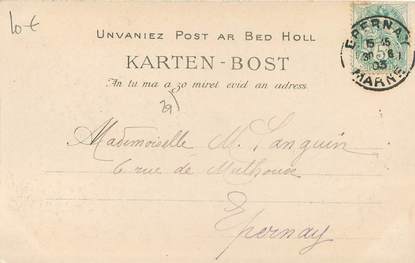 10 €
UNVANIEZ POST AR BED HOLL
KARTEN-BOST
An tu ma a zo miret evid an adress
Mademoiselle M. Sanguin
6 rue de Mulhouse
Epernay
EPERNAY
15-15
03
MARNE